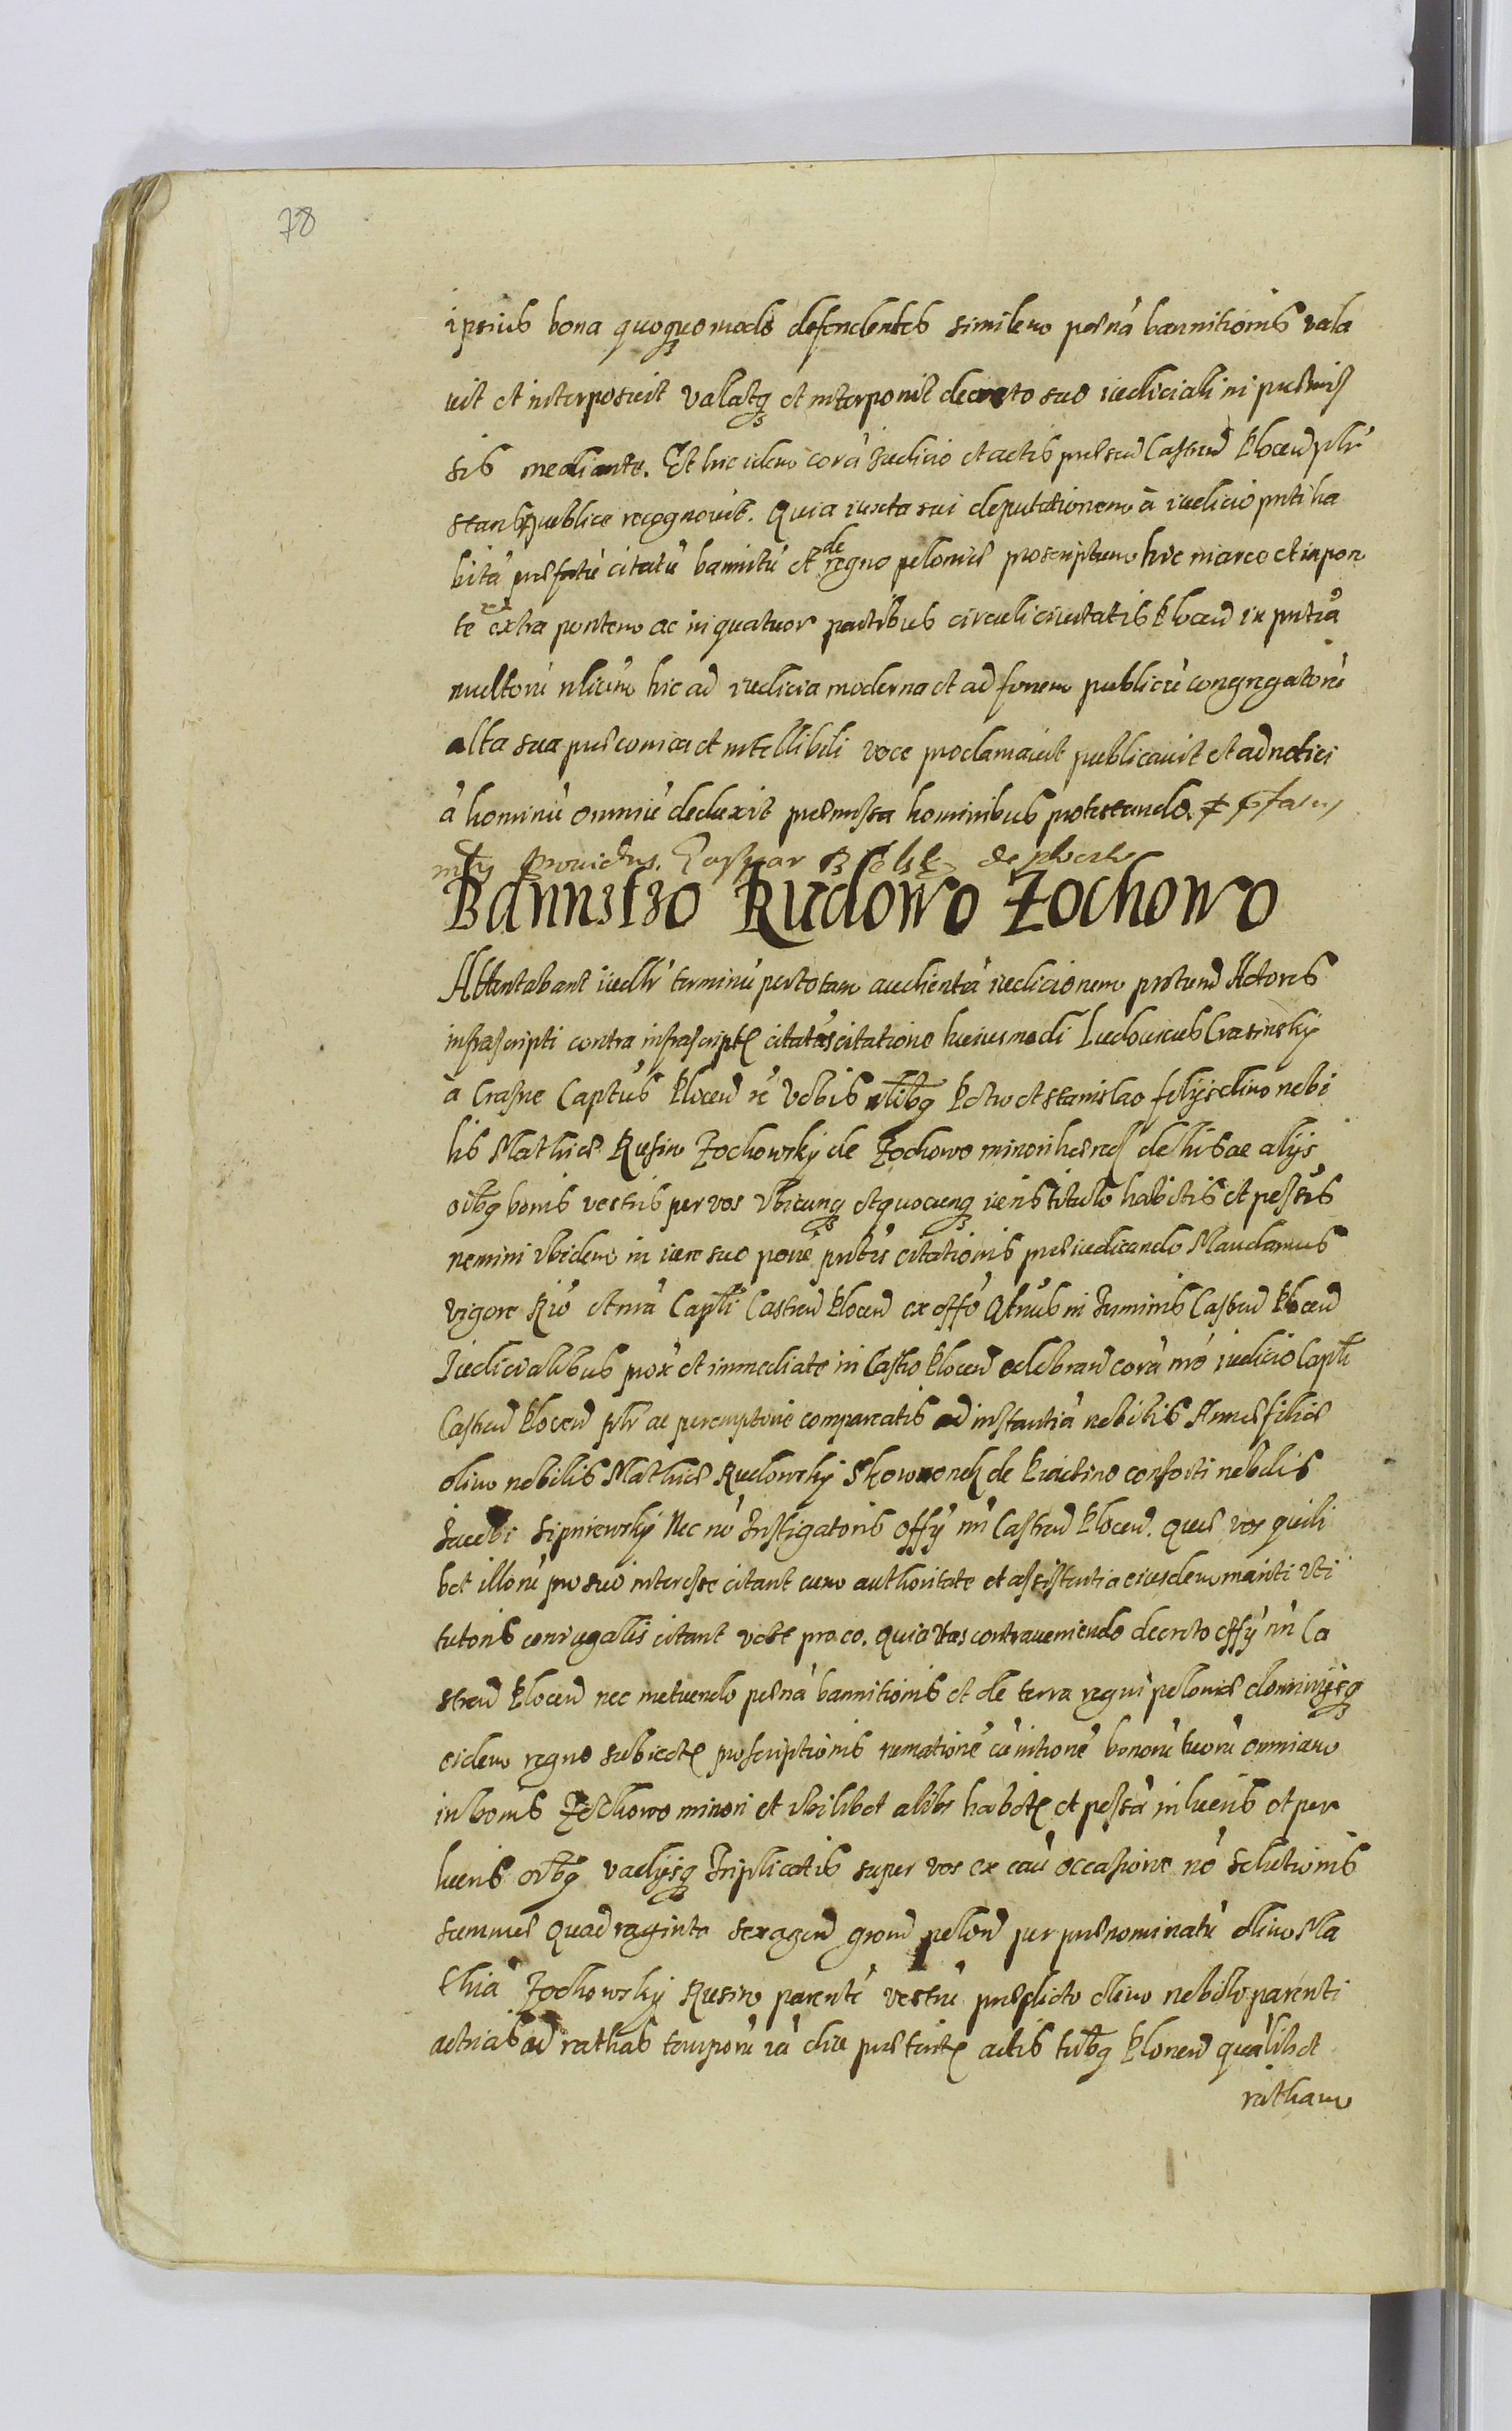 78
ipsius bona quoquomodo defendentes similem poenã bannitionis valla
uit et interposuit Vallatq et interponit decreto suo iudiciali in praemis
sis mediante. Et hic idem corã Iudicio et actis praesen Castren Plocen plr
stans publice recognouit. Quia iuxta sui deputationem à iudicio pnti ha
bitã praefatũ citatũ bannitũ et de regno poloniae proscriptum hic in arce et in pon
te et extra pontem ac in quatuor partibus circuli ciuitatis Plocen in pntia
multorũ nlium hic ad iudicia moderna et ad forum publicũ congregatorũ
alta sua praeconica et intellibili voce proclamauit publicauit et ad notici
ã hominũ omniũ deduxit praemissa hominibus protestando
prouidus. Caspar de plocko
Bannitio Rudowo Zochowo
Attentabant iudlr terminũ per totam audientiã iudicionem protunc Actores
infrascripti contra infrascript citatos citatione huiusmodi Ludouicus Crasinsky
à Crasne Captus Plocen &c Vobis nlibq Petro et Stanislao filijs olim nobi
lis Mathiae Rusin Zochowsky de Zochowo minori haered de his ac alijs
oibq bonis vestris per vos vbicunq et quocunq iuris titulo habitis et possis
nemini ibidem in iure suo ponẽ pntis citationis praeiudicando Mandamus
vigore Rio et nrã Capli Castren Plocen ex offo Qtnus in Terminis Castren Plocen
Iudicialibus prox et immediate in Castro Plocen celebran corã nro iudicio Capli
Castren Plocen plr ac peremptorie compareatis ad instantiã nobilis Annae filiae
olim nobilis Mathiae Rudowsky Skowronek de consorti nobilis
Iacobi Sipniewsky Nec nõ Instigatoris offy nri Castren Plocen. Quae vos quili
bet illorũ pro suo interesse citant cum authoritate et assistentia eiusdem mariti vti
tutoris coniugalis citant vobis pro eo. Quia vos contraueniendo decreto offy nri Ca
stren Plocen nec metuendo poenã bannitionis et de terra regni poloniae dominijsq
eidem regno subiect proscriptionis bonorũ tuorũ omnium
in bonis Zochowo minori et vbilibet alibi habit et possã in lucris et per
lucris oibq vadijsq Triplicatis super vos ex eaũ occasione nõ Solutionis
summae Quadraginta sexagen gron polon per praenominatũ olim Ma
thiã Zochowsky Rusin parentẽ vestrũ praedicto olim nobili parenti
actricis ad rathas temporũ iã diu praeterit actis tribq Plonen qualibet
ratham